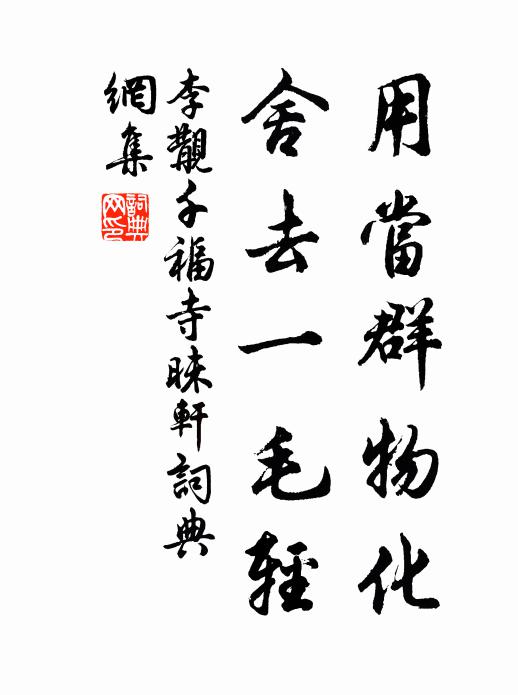 用當群物化
舍去一毛輕
李覯千福寺昧軒詞典
網集
詞典
网印